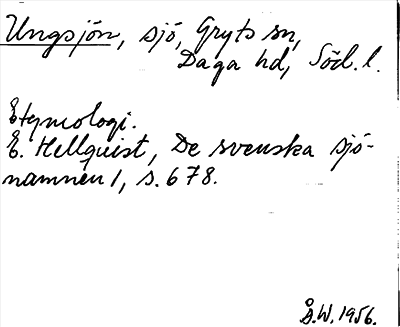 Ungsjön, sjö, Gryts sn,
Daga hd, Södl. l.
Etymologi.
E. Hellquist, De svenska sjö-
namnen 1, s. 678.
Å.W. 1956.